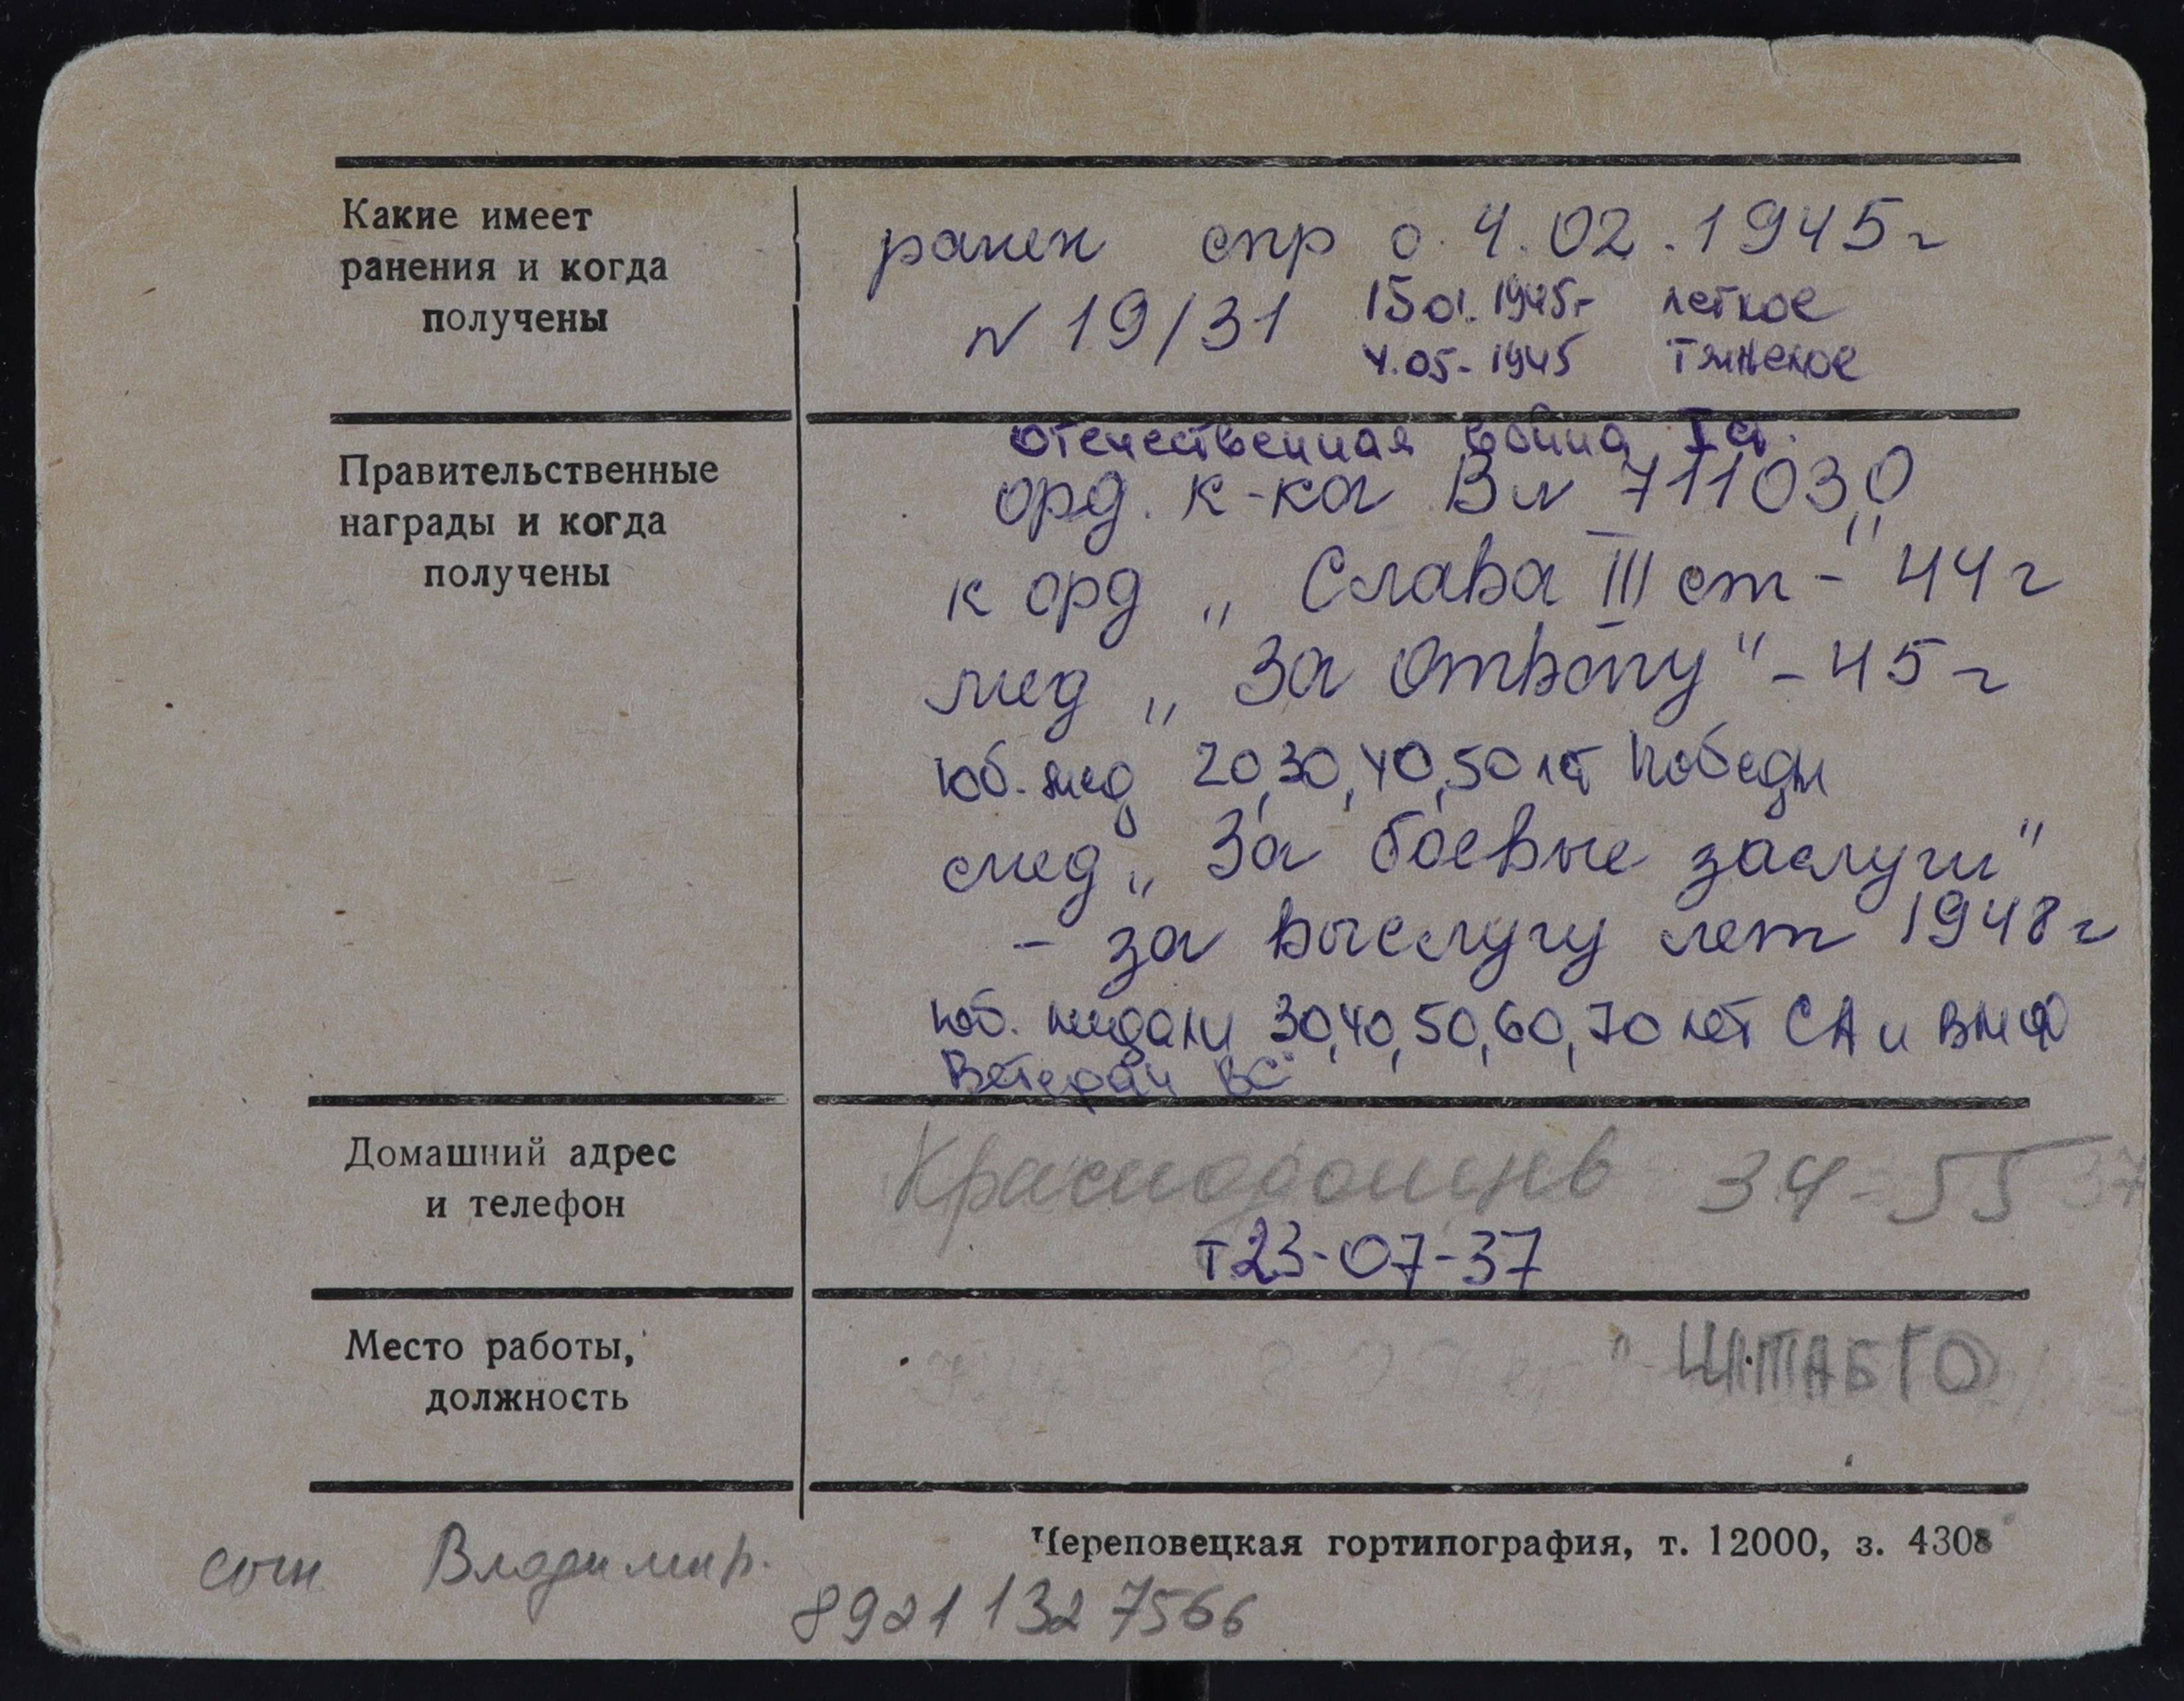 Какие имеет
ранения и когда
получены
ранен спр о 4.02.1945 г
№ 19/31 15 01. 1945 г легкое
4.05-1945 тяжелое
Правительственные
награды и когда
получены
Отечественная война I ст.
орд. к-ка В № 711030
к орд „ Слава III ст - " 44 г
мед „ За отвагу" - 45 г
юб. мед 20,30,40,50 лет Победы
мед „ За боевые заслуги"
- за выслугу лет 1948 г
юб. медали 30,40,50,60,70 лет СА и ВМФ
Ветеран ВС
Домашний адрес
и телефон
Краснодонцев 34-55 37
т 23-07-37
Место работы,
должность
" ШТАБ ГО
Череповецкая гортипография, т. 12000, з. 4308
сын Владимир.
8921 132 7566